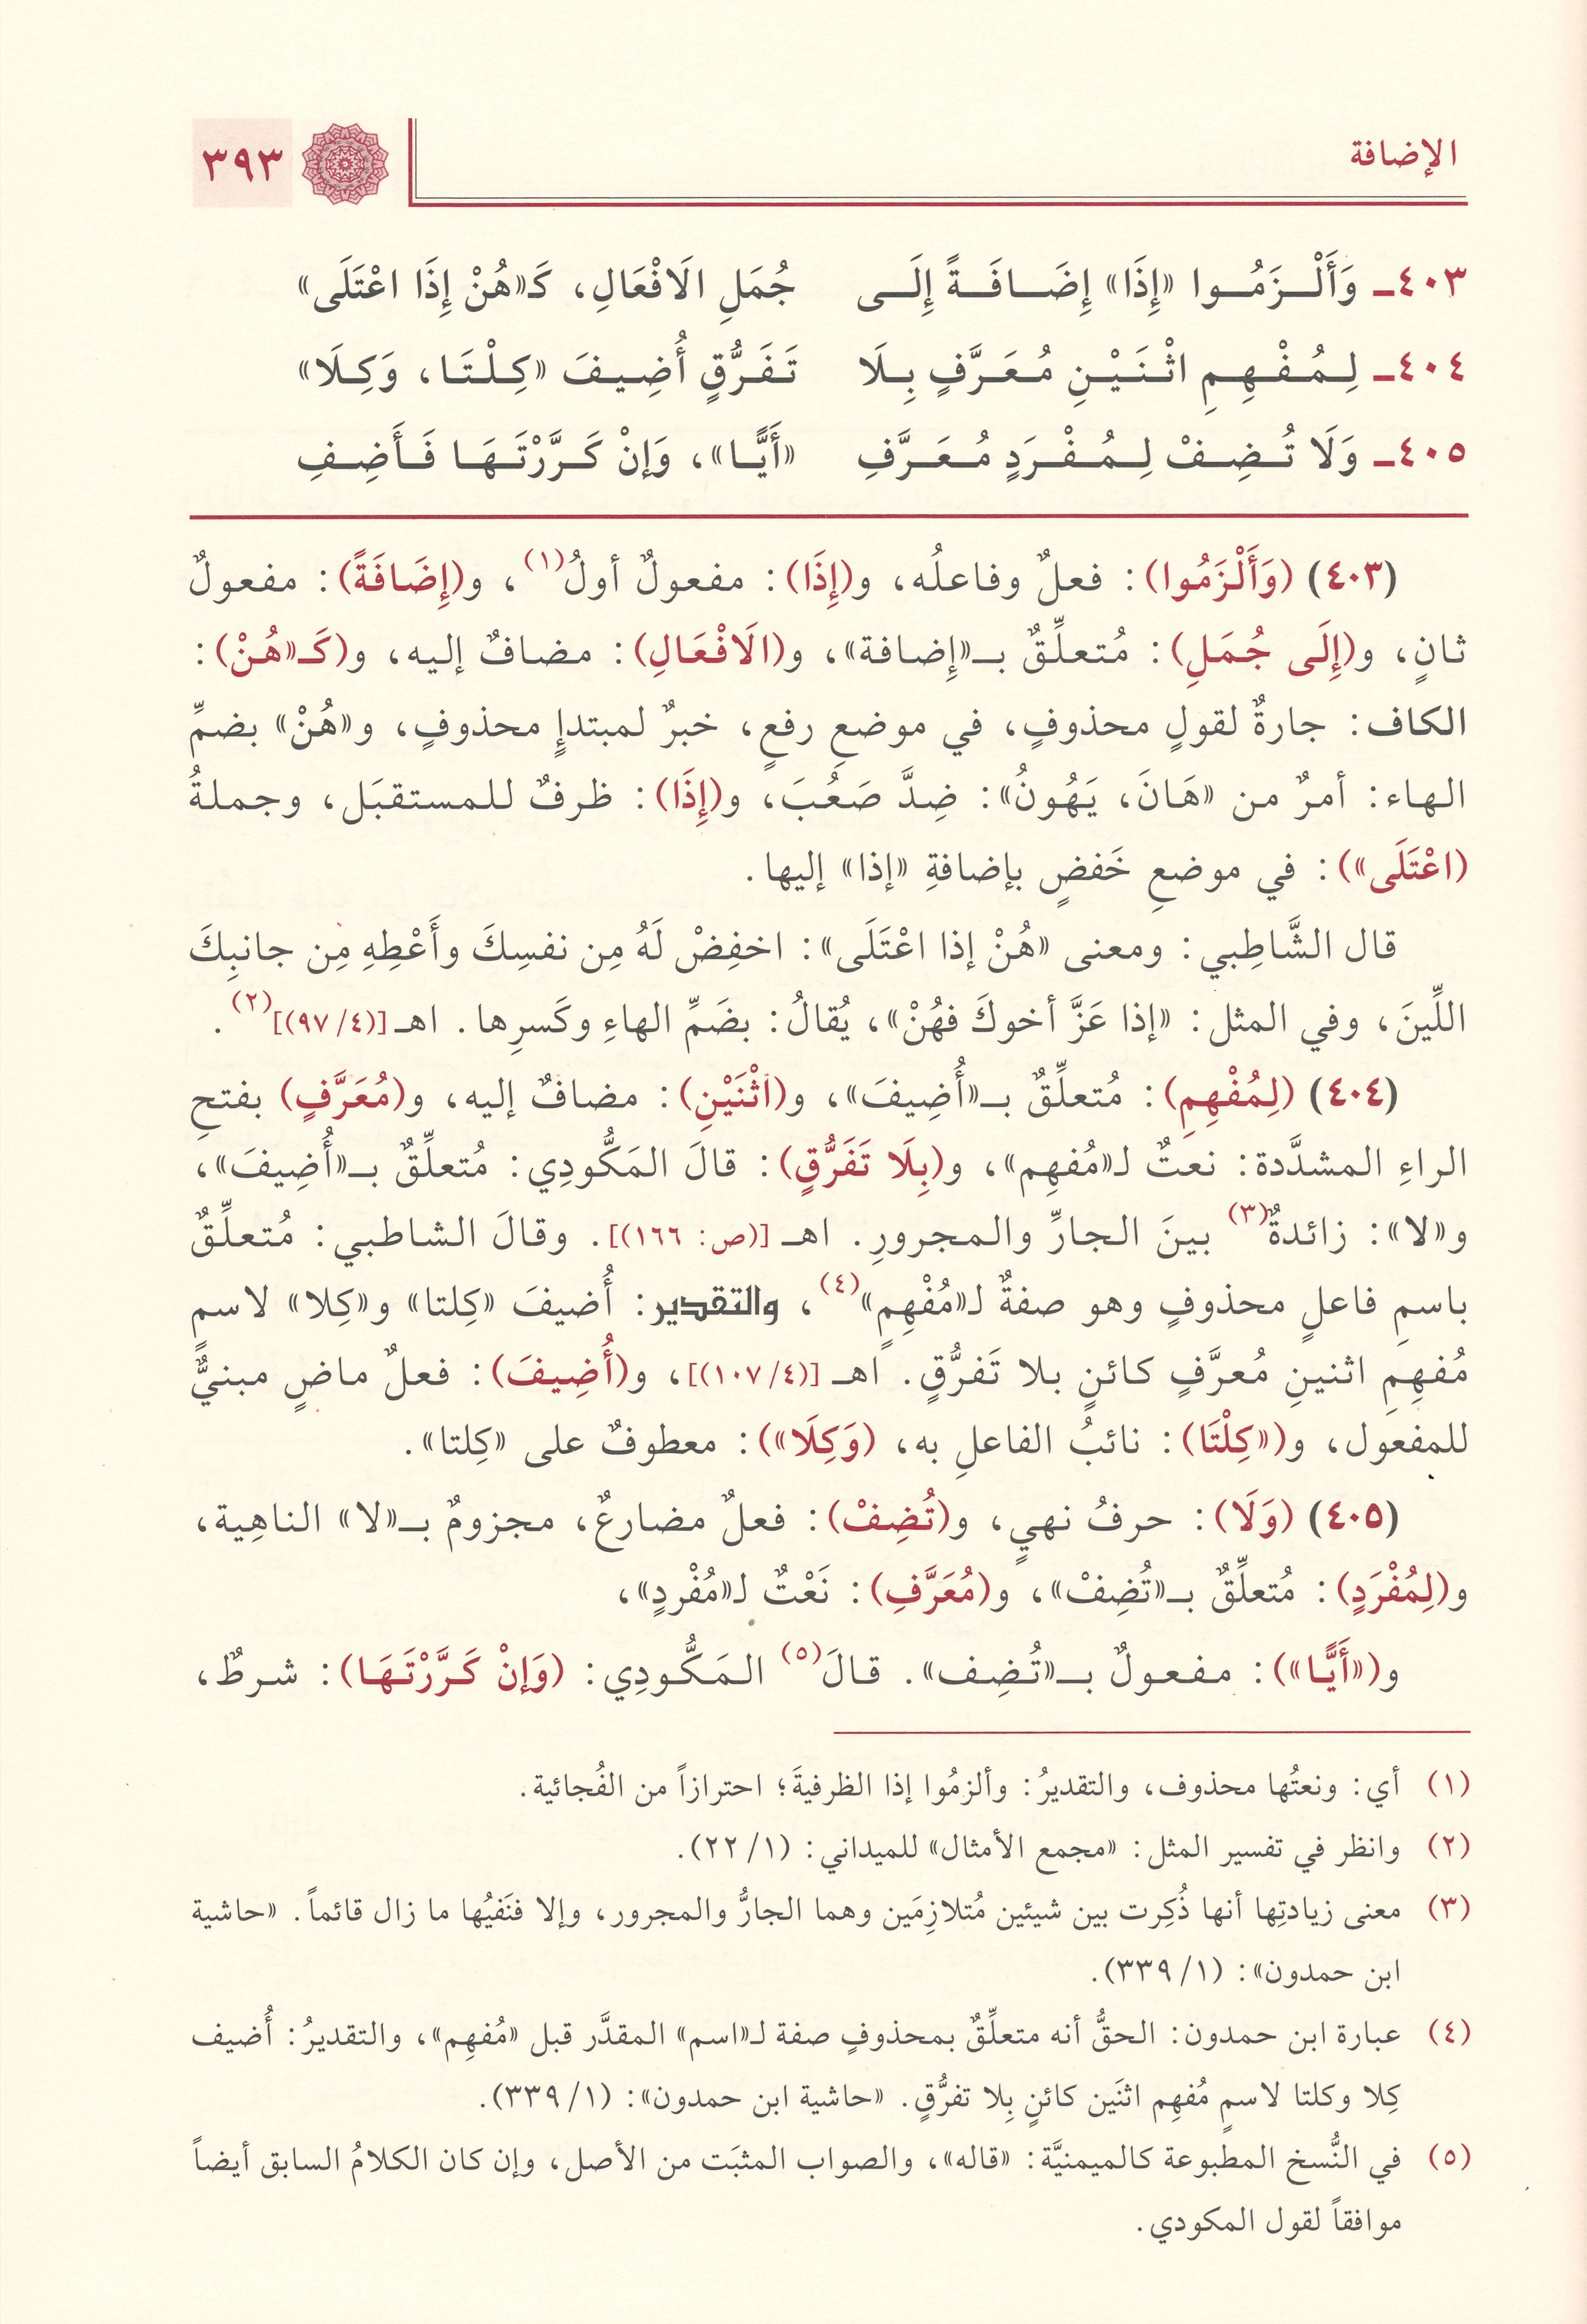 الإضافة
٣٩٣
٤٠٣ـ وَأَلْـزَمُـوا «إِذَا» إِضَـافَـةً إِلَـى جُمَلِ الَافْعَالِ، كَـ«هُنْ إِذَا اعْتَلَى»
٤٠٤ـ لِـمُـفْـهِـمِ اثْـنَـيْـنِ مُـعَـرَّفٍ بِـلَا تَـفَـرُّقٍ أُضِـيـفَ «كِـلْـتَـا، وَكِـلَا»
٤٠٥ـ وَلَا تُـضِـفْ لِـمُـفْـرَدٍ مُـعَـرَّفِ «أَيًّـا»، وَإنْ كَـرَّرْتَـهَـا فَـأَضِـفِ
(٤٠٣) (وَأَلْزَمُوا): فعلٌ وفاعلُه، و(إِذَا): مفعولٌ أولُ(١)، و(إِضَافَةً): مفعولٌ
ثانٍ، و(إِلَى جُمَلِ): مُتعلِّقٌ بـ«إِضافة»، و(الَافْعَالِ): مضافٌ إليه، و(كَـ«هُنْ):
الكاف: جارةٌ لقولٍ محذوفٍ، في موضعِ رفعٍ، خبرٌ لمبتدإٍ محذوفٍ، و«هُنْ» بضمِّ
الهاء: أمرٌ من «هَانَ، يَهُونُ»: ضِدَّ صَعُبَ، و(إِذَا): ظرفٌ للمستقبَل، وجملةُ
(اعْتَلَى»): في موضعِ خَفضٍ بإضافةِ «إذا» إليها.
قال الشَّاطِبي: ومعنى «هُنْ إذا اعْتَلَى»: اخفِضْ لَهُ مِن نفسِكَ وأَعْطِهِ مِن جانبِكَ
اللِّينَ، وفي المثل: «إذا عَزَّ أخوكَ فهُنْ»، يُقالُ: بضَمِّ الهاءِ وكَسرِها. اهـ [(٤/ ٩٧)](٢).
(٤٠٤) (لِمُفْهِمِ): مُتعلِّقٌ بـ«أُضِيفَ»، و(اثْنَيْنِ): مضافٌ إليه، و(مُعَرَّفٍ) بفتحِ
الراءِ المشدَّدة: نعتٌ لـ«مُفهِم»، و(بِلَا تَفَرُّقٍ): قالَ المَكُّودِي: مُتعلِّقٌ بـ«أُضِيفَ»،
و«لا»: زائدةٌ(٣) بينَ الجارِّ والمجرورِ. اهـ [(ص: ١٦٦)]. وقالَ الشاطبي: مُتعلِّقٌ
باسمِ فاعلٍ محذوفٍ وهو صفةٌ لـ«مُفْهِمٍ»(٤)، والتقدير: أُضيفَ «كِلتا» و«كِلا» لاسمٍ
مُفهِمِ اثنينِ مُعرَّفٍ كائنٍ بلا تَفرُّقٍ. اهـ [(٤/ ١٠٧)]، و(أُضِيفَ): فعلٌ ماضٍ مبنيٌّ
للمفعول، و(«كِلْتَا): نائبُ الفاعلِ به، (وَكِلَا»): معطوفٌ على «كِلتا».
(٤٠٥) (وَلَا): حرفُ نهيٍ، و(تُضِفْ): فعلٌ مضارعٌ، مجزومٌ بـ«لا» الناهِية،
و(لِمُفْرَدٍ): مُتعلِّقٌ بـ«تُضِفْ»، و(مُعَرَّفِ): نَعْتٌ لـ«مُفْردٍ»،
و(«أَيًّا»): مفعولٌ بـ«تُضِف». قالَ(٥) المَكُّودِي: (وَإنْ كَرَّرْتَهَا): شرطٌ،
(١) أي: ونعتُها محذوف، والتقديرُ: وألزمُوا إذا الظرفيةَ؛ احترازاً من الفُجائية.
(٢) وانظر في تفسير المثل: «مجمع الأمثال» للميداني: (١/ ٢٢).
(٣) معنى زيادتِها أنها ذُكِرت بين شيئين مُتلازِمَين وهما الجارُّ والمجرور، وإلا فنَفيُها ما زال قائماً. «حاشية
ابن حمدون»: (١/ ٣٣٩).
(٤) عبارة ابن حمدون: الحقُّ أنه متعلِّقٌ بمحذوفٍ صفة لـ«اسم» المقدَّر قبل «مُفهِم»، والتقديرُ: أُضيف
كِلا وكلتا لاسمٍ مُفهِم اثنَين كائنٍ بِلا تفرُّقٍ. «حاشية ابن حمدون»: (١/ ٣٣٩).
(٥) في النُّسخ المطبوعة كالميمنيَّة: «قاله»، والصواب المثبَت من الأصل، وإن كان الكلامُ السابق أيضاً
موافقاً لقول المكودي.